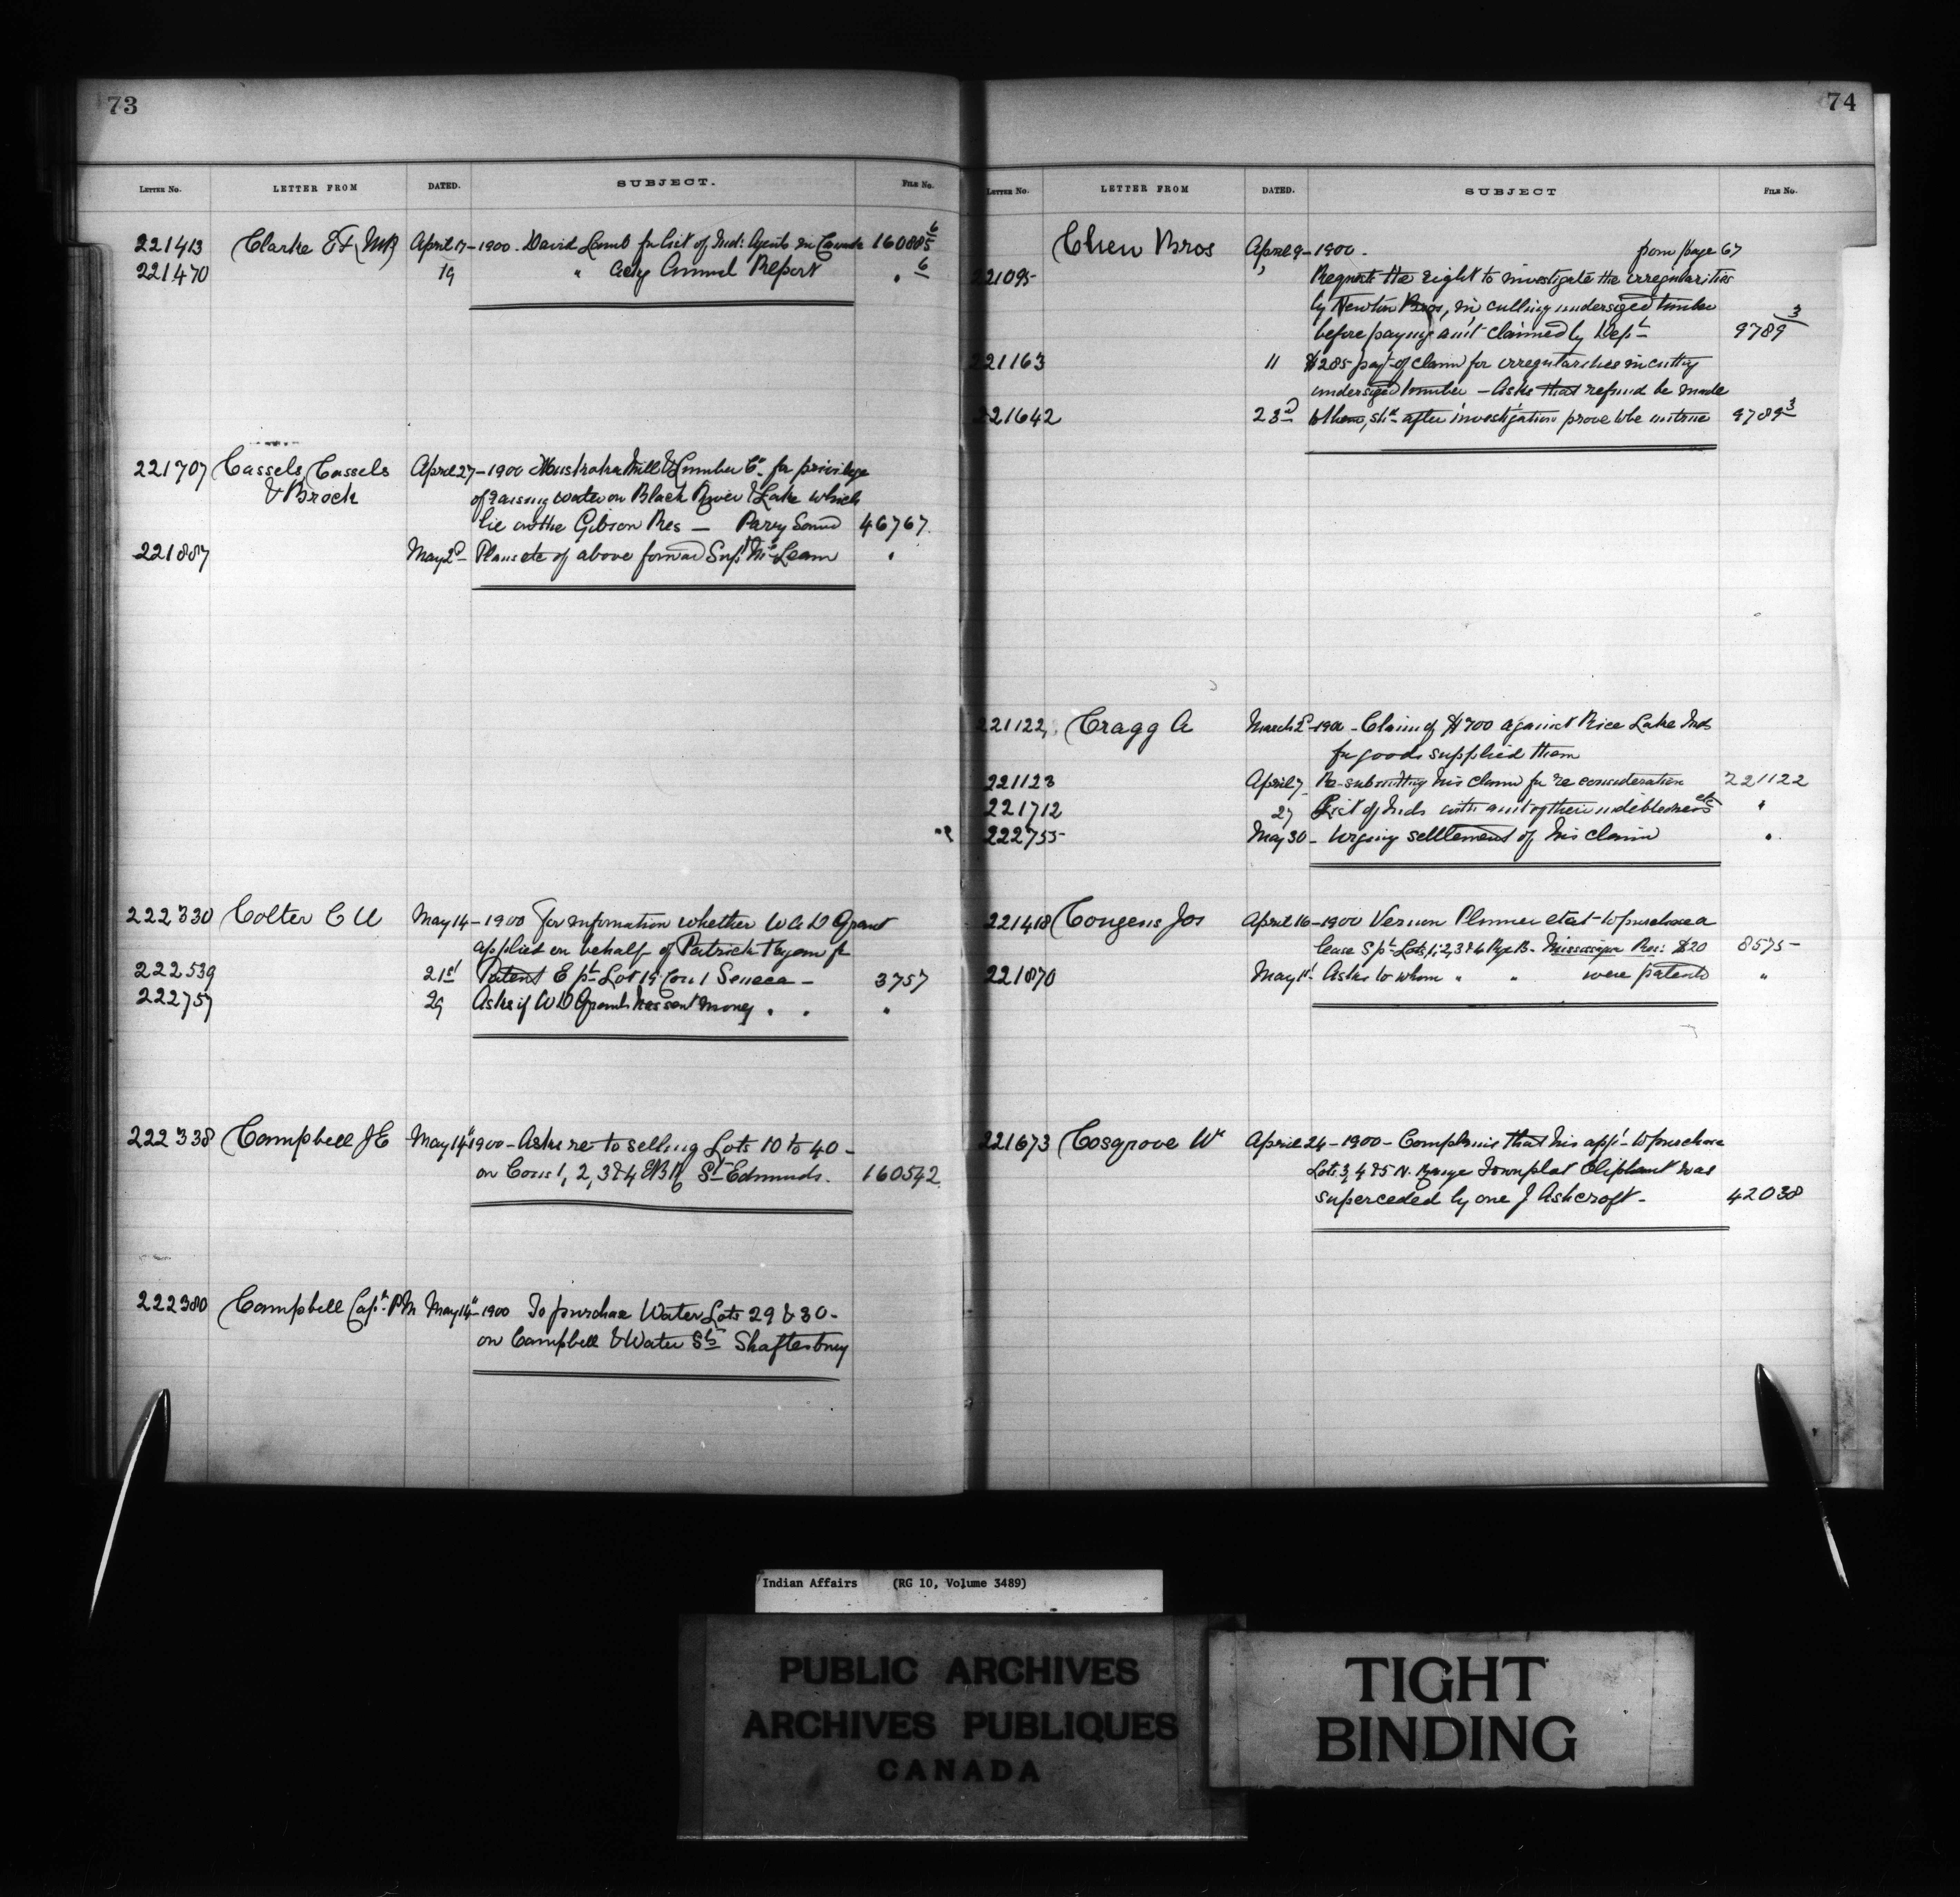 73
LETTER No. LETTER FROM DATED. SUBJECT. FILE No.
221413 Clarke E F (MP) April 17 - 1900 - David Lamb for list of Ind: Agents in Canada 160885 6
221470 19 " ackg Annual Report " 6
221707 Cassels, Cassels April 27 - 1900 Muskoka Mill & Lumber Co. for privilege
& Brock of raising water on Black River & Lake which
lie on the Gibson Res — Parry Sound 46767.
221887 May 2d Plans etc of above forwd Supt McLean "
222330 Colter C W May 14 - 1900 For information whether W A D Grant
applied on behalf of Patrick for
222539 21st Patent E pt Lot 19 Con 1 Seneca - 3757
222757 29 Asks if W D Grant has sent money " " "
222338 Campbell J E May 14" 1900 - Asks re to selling Lots 10 to 40 -
on Cons 1, 2, 3 & 4 EBR St Edmunds. 160542
222380 Campbell Capt. P M May 14" - 1900 To purchae Water Lots 29 & 30 -
on Campbell & Water Sts Shaftesbury
74
LETTER No. LETTER FROM DATED. SUBJECT FILE No.
Chew Bros April 9 - 1900 - from page 67
221095 " Requests the right to investigate the irregularities
by Newton Bros, in culling undersized timber
before paying amt claimed by Dept 9789 3
221163 11 $285 payt of claim for irregularities in cutting
undersized timber - Asks that refund be made
221642 23d them, shd after investigation prove to be untrue 9789 3
221122 Cragg A March 2d - 1900 - Claim of $700 against Rice Lake Inds
for goods supplied them
221123 April 7 Re-submitting his claim for re consideration 221122
221712 27 List of Inds with amt of their indebtedness etc "
222755 May 30 - Urging settlement of his claim "
221418 Cougens Jos April 16 - 1900 Vernon Plummer etal - to purchase a
lease S pt Lots 1, 2, 3 & 4 Rge B - Mississagua Res: $20 8575
221870 May 1st Asks to whom " " were patented "
221673 Cosgrove Wm April 24 - 1900 - Complains that his appn to purchase
Lots 3, 4 & 5 N. Range Townplot Oliphant was
superceded by one J Ashcroft - 42038
Indian Affairs (RG 10, Volume 3489)
PUBLIC ARCHIVES
ARCHIVES PUBLIQUES
CANADA
TIGHT
BINDING